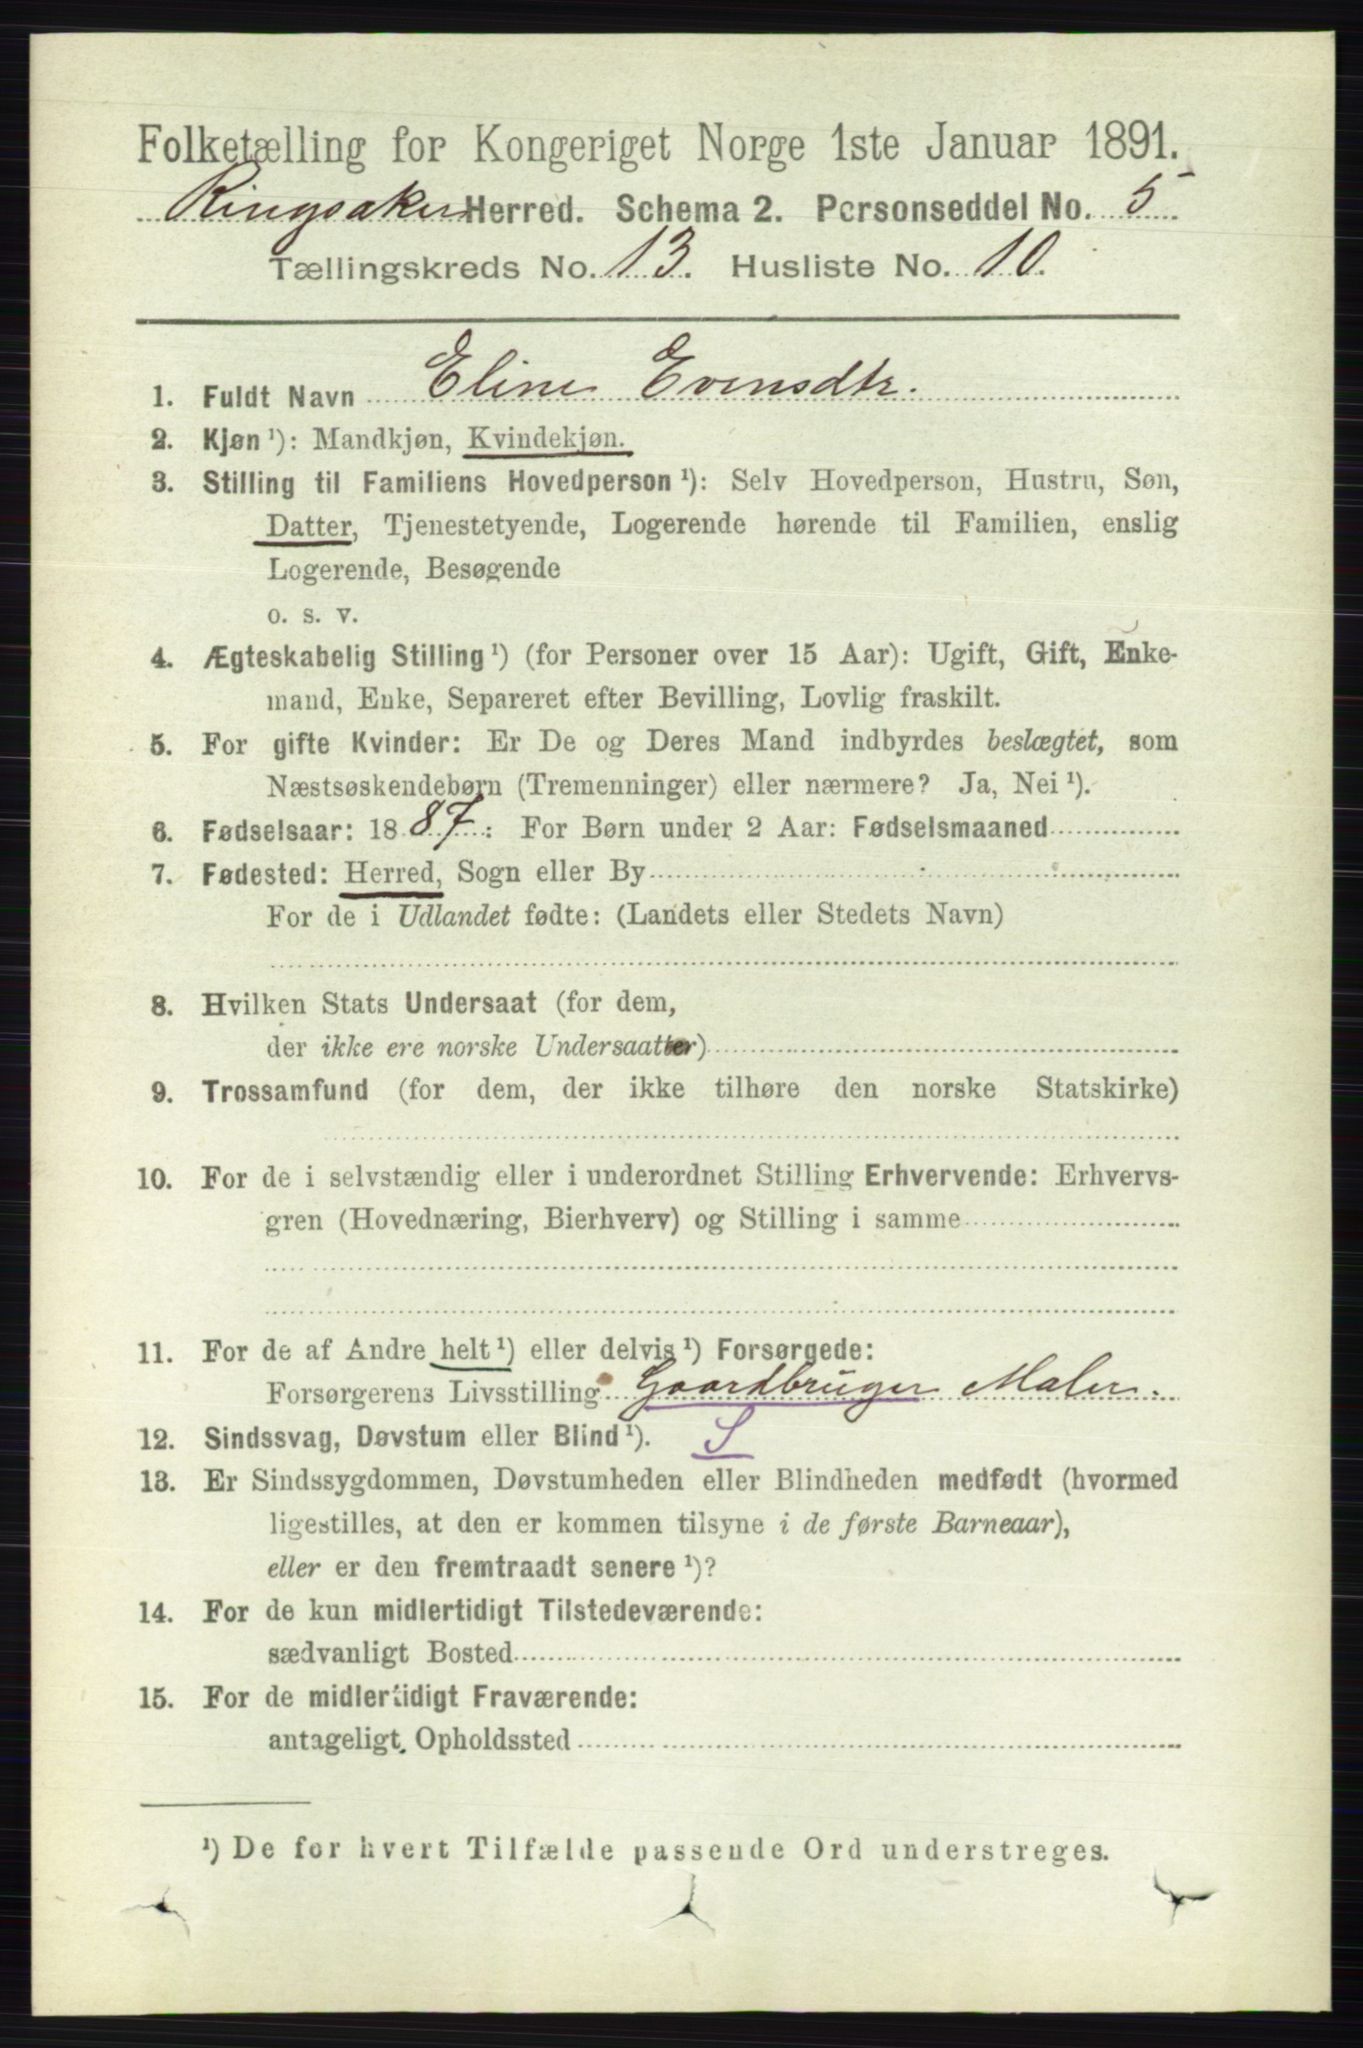 Folketælling for Kongeriget Norge 1ste Januar 1891.
Ringsaker Herred. Schema 2. Personseddel No. 5
Tællingskreds No. 13. Husliste No. 10.
1. Fuldt Navn Eline Evensdtr.
2. Kjøn ¹): Mandkjøn, Kvindekjøn.
3. Stilling til Familiens Hovedperson ¹): Selv Hovedperson, Hustru, Søn,
Datter, Tjenestetyende, Logerende hørende til Familien, enslig
Logerende, Besøgende
o. s. v.
4. Ægteskabelig Stilling ¹) (for Personer over 15 Aar): Ugift, Gift, Enke-
mand, Enke, Separeret efter Bevilling, Lovlig fraskilt.
5. For gifte Kvinder: Er De og Deres Mand indbyrdes beslægtet, som
Næstsøskendebørn (Tremenninger) eller nærmere? Ja, Nei ¹).
6. Fødselsaar: 1887: For Børn under 2 Aar: Fødselsmaaned
7. Fødested: Herred, Sogn eller By
For de i Udlandet fødte: (Landets eller Stedets Navn)
8. Hvilken Stats Undersaat (for dem,
der ikke ere norske Undersaatter)
9. Trossamfund (for dem, der ikke tilhøre den norske Statskirke)
10. For de i selvstændig eller i underordnet Stilling Erhvervende: Erhvervs-
gren (Hovednæring, Bierhverv) og Stilling i samme
11. For de af Andre helt ¹) eller delvis ¹) Forsørgede:
Forsørgerens Livsstilling Gaardbruger Maler.
12. Sindssvag, Døvstum eller Blind ¹). S
13. Er Sindssygdommen, Døvstumheden eller Blindheden medfødt (hvormed
ligestilles, at den er kommen tilsyne i de første Barneaar),
eller er den fremtraadt senere ¹)?
14. For de kun midlertidigt Tilstedeværende:
sædvanligt Bosted
15. For de midlertidigt Fraværende:
antageligt Opholdssted
¹) De for hvert Tilfælde passende Ord understreges.